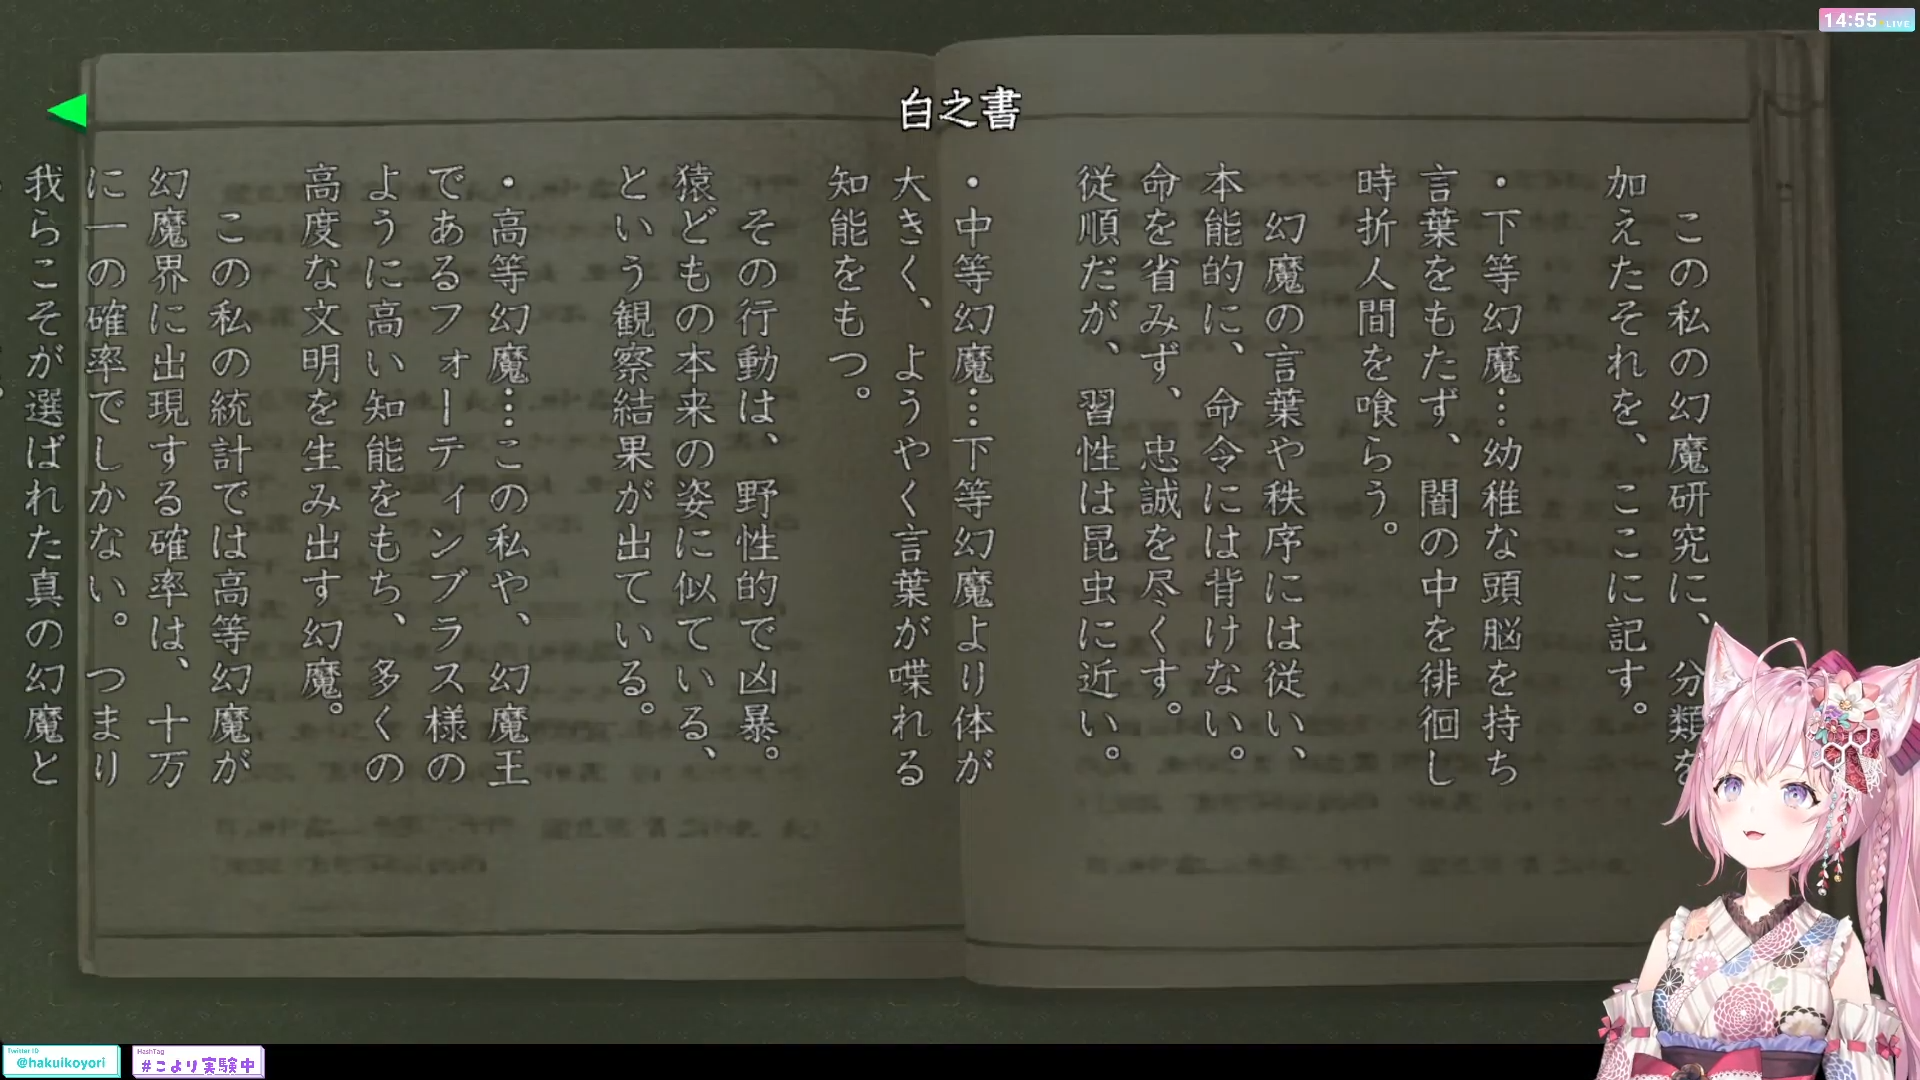 14:55 LIVE
白之書
この私の幻魔研究に、分類を
加えたそれを、ここに記す。
・下等幻魔…幼稚な頭脳を持ち
言葉をもたず、闇の中を徘徊し
時折人間を喰らう。
幻魔の言葉や秩序には従い、
本能的に、命令には背けない。
命を省みず、忠誠を尽くす。
従順だが、習性は昆虫に近い。
・中等幻魔…下等幻魔より体が
大きく、ようやく言葉が喋れる
知能をもつ。
その行動は、野性的で凶暴。
猿どもの本来の姿に似ている、
という観察結果が出ている。
・高等幻魔…この私や、幻魔王
であるフォーティンブラス様の
ように高い知能をもち、多くの
高度な文明を生み出す幻魔。
この私の統計では高等幻魔が
幻魔界に出現する確率は、十万
に一の確率でしかない。つまり
我らこそが選ばれた真の幻魔と
Twitter ID
@hakuikoyori
HashTag
#こより実験中